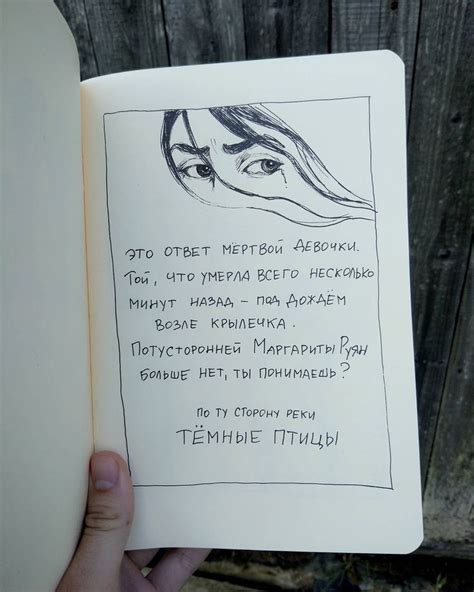 ЭТО ОТВЕТ МЁРТВОЙ ДЕВОЧКИ.
ТОЙ, ЧТО УМЕРЛА ВСЕГО НЕСКОЛЬКО
МИНУТ НАЗАД – ПОД ДОЖДЁМ
ВОЗЛЕ КРЫЛЕЧКА.
ПОТУСТОРОННЕЙ МАРГАРИТЫ РУЯН
БОЛЬШЕ НЕТ, ТЫ ПОНИМАЕШЬ?
ПО ТУ СТОРОНУ РЕКИ
ТЁМНЫЕ ПТИЦЫ